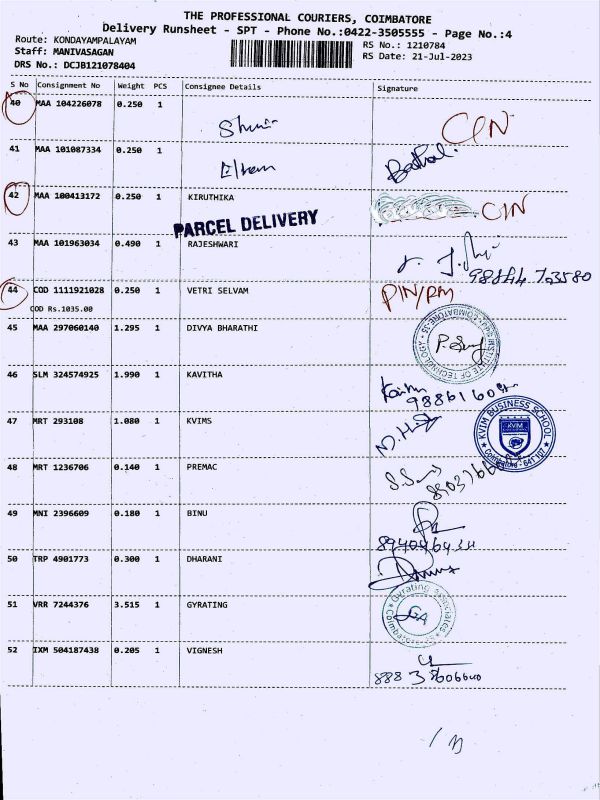 THE PROFESSIONAL COURIERS, COIMBATORE
Delivery Runsheet - SPT - Phone No.:0422-3505555 - Page No.:4
Route: KONDAYAMPALAYAM
Staff: MANIVASAGAN
DRS No.: DCJB121078404
RS No.: 1210784
RS Date: 21-Jul-2023
S No Consignment No Weight PCS Consignee Details Signature
40 MAA 104226078 0.250 1 CIN
41 MAA 101087334 0.250 1
42 MAA 100413172 0.250 1 KIRUTHIKA CIN
PARCEL DELIVERY
43 MAA 101963034 0.490 1 RAJESHWARI
44 COD 1111921028 0.250 1 VETRI SELVAM PIN/RM
COD Rs.1035.00
45 MAA 297060140 1.295 1 DIVYA BHARATHI
INSTITUTE OF TECHNOLOGY COIMBATORE-35
46 SLM 324574925 1.990 1 KAVITHA
47 MRT 293108 1.080 1 KVIMS
KVIM BUSINESS SCHOOL
KVIM
Coimbatore - 641 107
48 MRT 1236706 0.140 1 PREMAC
49 MNI 2396609 0.180 1 BINU
50 TRP 4901773 0.300 1 DHARANI
51 VRR 7244376 3.515 1 GYRATING
Gyrating Associates
GA
52 IXM 504187438 0.205 1 VIGNESH